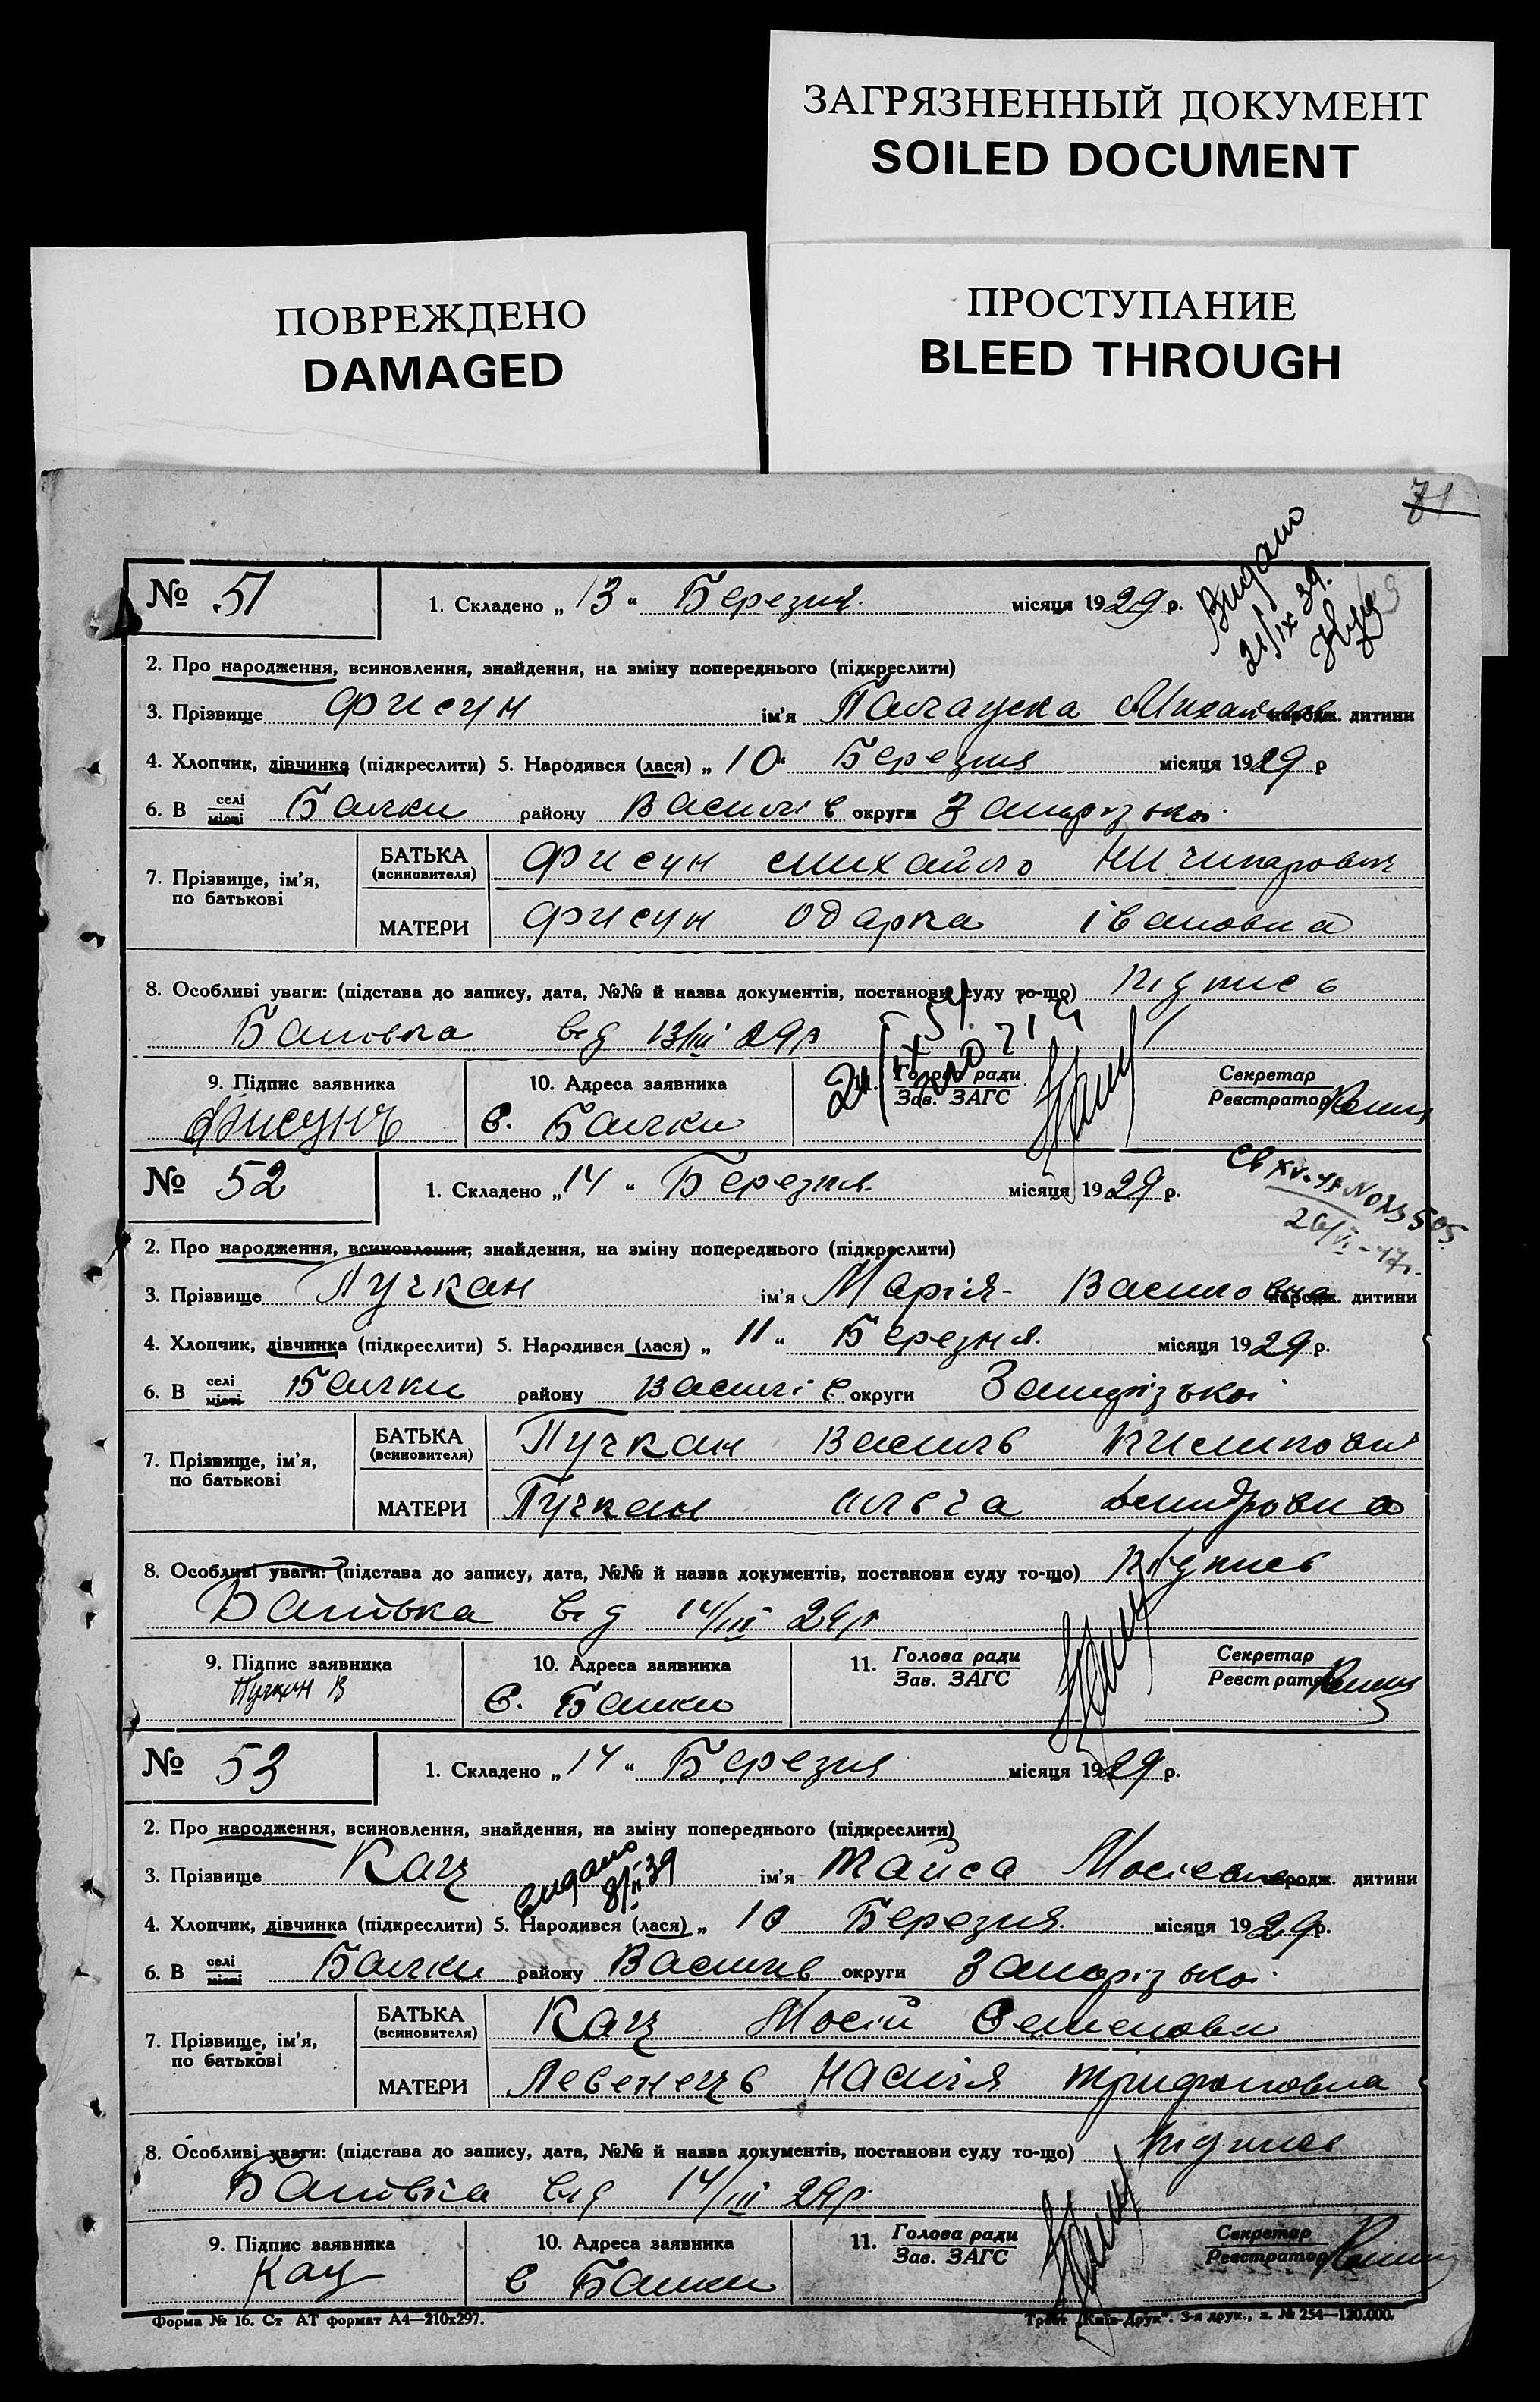 ЗАГРЯЗНЕННЫЙ ДОКУМЕНТ
SOILED DOCUMENT
ПОВРЕЖДЕНО
DAMAGED
ПРОСТУПАНИЕ
BLEED THROUGH
71
Видано
21/IX 39.
№ 51
1. Складено „ 13 “ Березня. місяця 1929 р.
2. Про народження, всиновлення, знайдення, на зміну попереднього (підкреслити)
3. Прізвище Фисун ім'я Палажка Михайловна народж. дитини
4. Хлопчик, дівчинка (підкреслити) 5. Народився (лася) „ 10 “ Березня місяця 1929 р
6. В селі Балки району Василів округи Запорізької
місті
7. Прізвище, ім'я, по батькові
БАТЬКА (всиновителя) Фисун Михайло Ничипорович
МАТЕРИ Фисун Одарка Івановна
8. Особливі уваги: (підстава до запису, дата, №№ й назва документів, постанови суду то-що) Підпись
Батька від 13/III 29р
9. Підпис заявника
Фисунъ
10. Адреса заявника
с. Балки
11. Голова ради
Зав. ЗАГС
Секретар
Реєстратор
№ 52
1. Складено „ 14 “ Березня. місяця 1929 р.
26/VI-47г.
2. Про народження, всиновлення, знайдення, на зміну попереднього (підкреслити)
3. Прізвище Пучкан ім'я Марія- Василовна народж. дитини
4. Хлопчик, дівчинка (підкреслити) 5. Народився (лася) „ 11 “ Березня. місяця 1929 р.
6. В селі Балки району Василів округи Запорізької
місті
7. Прізвище, ім'я, по батькові
БАТЬКА (всиновителя) Пучкан Василь
МАТЕРИ Пучкан
8. Особливі уваги: (підстава до запису, дата, №№ й назва документів, постанови суду то-що) Підпись
Батька від 14/III 29р
9. Підпис заявника
Пучкан В
10. Адреса заявника
с. Балки
11. Голова ради
Зав. ЗАГС
Секретар
Реєстратор
№ 53
1. Складено „ 14 “ Березня місяця 1929 р.
2. Про народження, всиновлення, знайдення, на зміну попереднього (підкреслити)
3. Прізвище Кац ім'я Таиса Мосіевна народж. дитини
видано
8/II 39
4. Хлопчик, дівчинка (підкреслити) 5. Народився (лася) „ 10 Березня місяця 1929 р.
6. В селі Балки району Василів округи Запорізької
місті
7. Прізвище, ім'я, по батькові
БАТЬКА (всиновителя) Кац Мосій Семенови
МАТЕРИ Левенець Настя Трифоновна
8. Особливі уваги: (підстава до запису, дата, №№ й назва документів, постанови суду то-що) Підпись
Батька від 14/III 29р.
9. Підпис заявника
Кац
10. Адреса заявника
с Балки
11. Голова ради
Зав. ЗАГС
Секретар
Реєстратор
Форма № 16. Ст АТ формат А4—210х297.
Трест „Київ-Друк". 3-я друк., з. № 254—120.000.